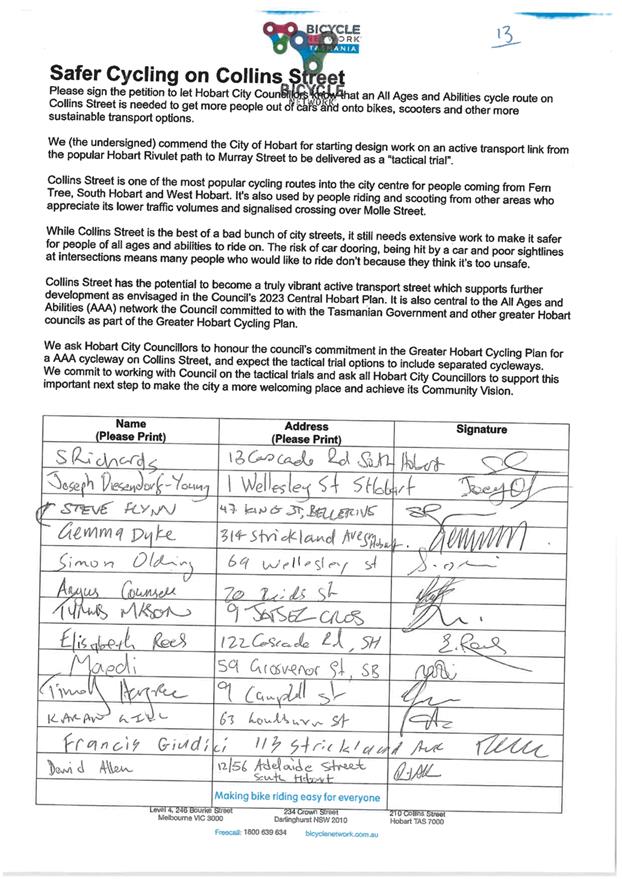 13
BICYCLE
NETWORK
TASMANIA
Safer Cycling on Collins Street
BICYCLE
NETWORK
Please sign the petition to let Hobart City Councillors know that an All Ages and Abilities cycle route on
Collins Street is needed to get more people out of cars and onto bikes, scooters and other more
sustainable transport options.
We (the undersigned) commend the City of Hobart for starting design work on an active transport link from
the popular Hobart Rivulet path to Murray Street to be delivered as a "tactical trial".
Collins Street is one of the most popular cycling routes into the city centre for people coming from Fern
Tree, South Hobart and West Hobart. It's also used by people riding and scooting from other areas who
appreciate its lower traffic volumes and signalised crossing over Molle Street.
While Collins Street is the best of a bad bunch of city streets, it still needs extensive work to make it safer
for people of all ages and abilities to ride on. The risk of car dooring, being hit by a car and poor sightlines
at intersections means many people who would like to ride don't because they think it's too unsafe.
Collins Street has the potential to become a truly vibrant active transport street which supports further
development as envisaged in the Council's 2023 Central Hobart Plan. It is also central to the All Ages and
Abilities (AAA) network the Council committed to with the Tasmanian Government and other greater Hobart
councils as part of the Greater Hobart Cycling Plan.
We ask Hobart City Councillors to honour the council's commitment in the Greater Hobart Cycling Plan for
a AAA cycleway on Collins Street, and expect the tactical trial options to include separated cycleways.
We commit to working with Council on the tactical trials and ask all Hobart City Councillors to support this
important next step to make the city a more welcoming place and achieve its Community Vision.
Name (Please Print) Address (Please Print) Signature
S Richards 13 Cascade Rd South Hobart
Joseph Diesendorf-Young 1 Wellesley St S Hobart
STEVE FLYNN 47 KING ST, BELLERIVE
Gemma Dyke 314 Strickland Ave S Hobart
Simon Olding 69 Wellesley st
Angus st
9
Elisabeth Rees 122 Cascade Rd, SH E. Rees
Magdi 59 Grosvenor St, SB
Timothy 9 Campbell st
KARAN GILL 63 st
Francis Giudici 113 Strickland Ave
David Allen 12/56 Adelaide Street South Hobart
Making bike riding easy for everyone
Level 4, 246 Bourke Street
Melbourne VIC 3000
234 Crown Street
Darlinghurst NSW 2010
210 Collins Street
Hobart TAS 7000
Freecall: 1800 639 634 bicyclenetwork.com.au